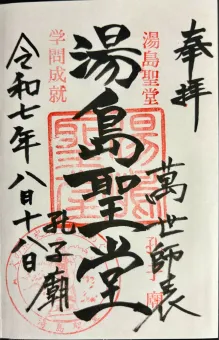 奉拝
萬世師表
湯島聖堂
湯島聖堂
孔子廟
学問成就
令和七年八月十八日